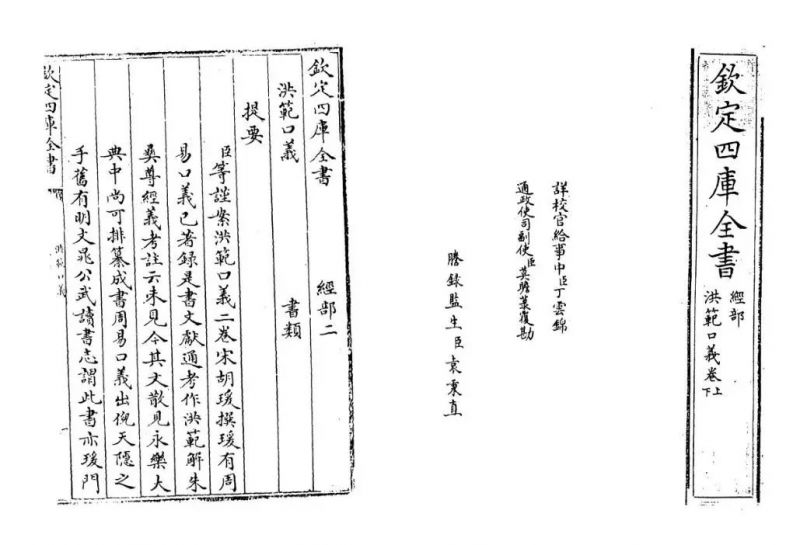 欽定四庫全書
經部
洪範口義卷上下
詳校官給事中臣丁雲錦
通政使司副使臣莫瞻菉覆勘
謄錄監生臣袁秉直
欽定四庫全書 經部二
洪範口義 書類
提要
臣等謹案洪範口義二卷宋胡瑗撰瑗有周
易口義已著錄是書文獻通考作洪範解朱
彝尊經義考註云未見今其文散見永樂大
典中尚可排纂成書周易口義出倪天隱之
手舊有明文晁公武讀書志謂此書亦瑗門
欽定四庫全書
洪範口義